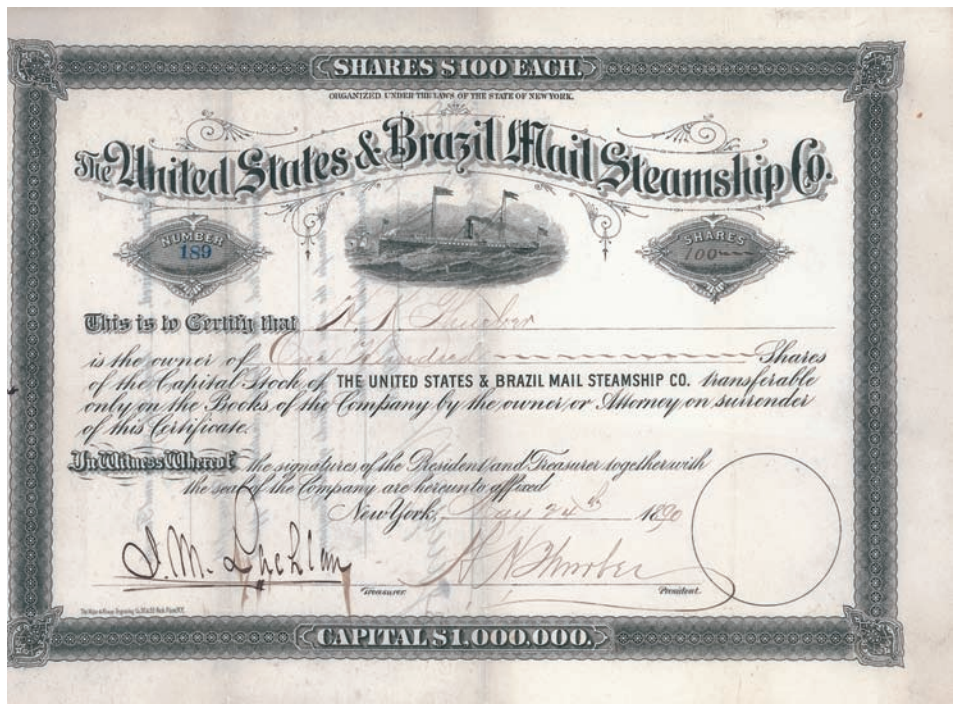 SHARES $100 EACH.
ORGANIZED UNDER THE LAWS OF THE STATE OF NEW YORK.
The United States & Brazil Mail Steamship Co.
NUMBER
189
SHARES
100
This is to Certify that H. K. Thurber
is the owner of One Hundred Shares
of the Capital Stock of THE UNITED STATES & BRAZIL MAIL STEAMSHIP CO. transferable
only on the Books of the Company by the owner or Attorney on surrender
of this Certificate.
In Witness Whereof the signatures of the President and Treasurer together with
the seal of the Company are hereunto affixed
New York, May 24th 1890
Treasurer.
President.
CAPITAL $1,000,000.